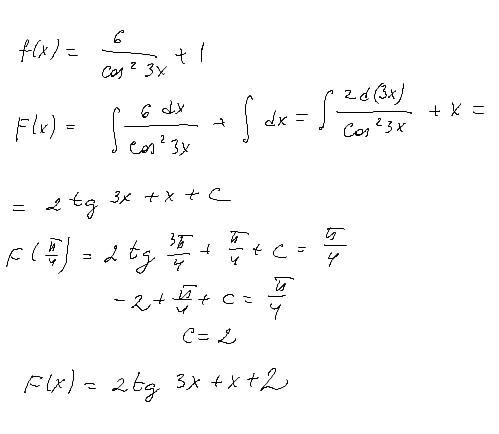 f(x) = 6/cos² 3x + 1
F(x) = ∫ 6 dx/cos² 3x + ∫ dx = ∫ 2 d(3x)/cos² 3x + x =
= 2 tg 3x + x + C
F(π/4) = 2 tg 3π/4 + π/4 + C = π/4
-2 + π/4 + C = π/4
C = 2
F(x) = 2tg 3x + x + 2